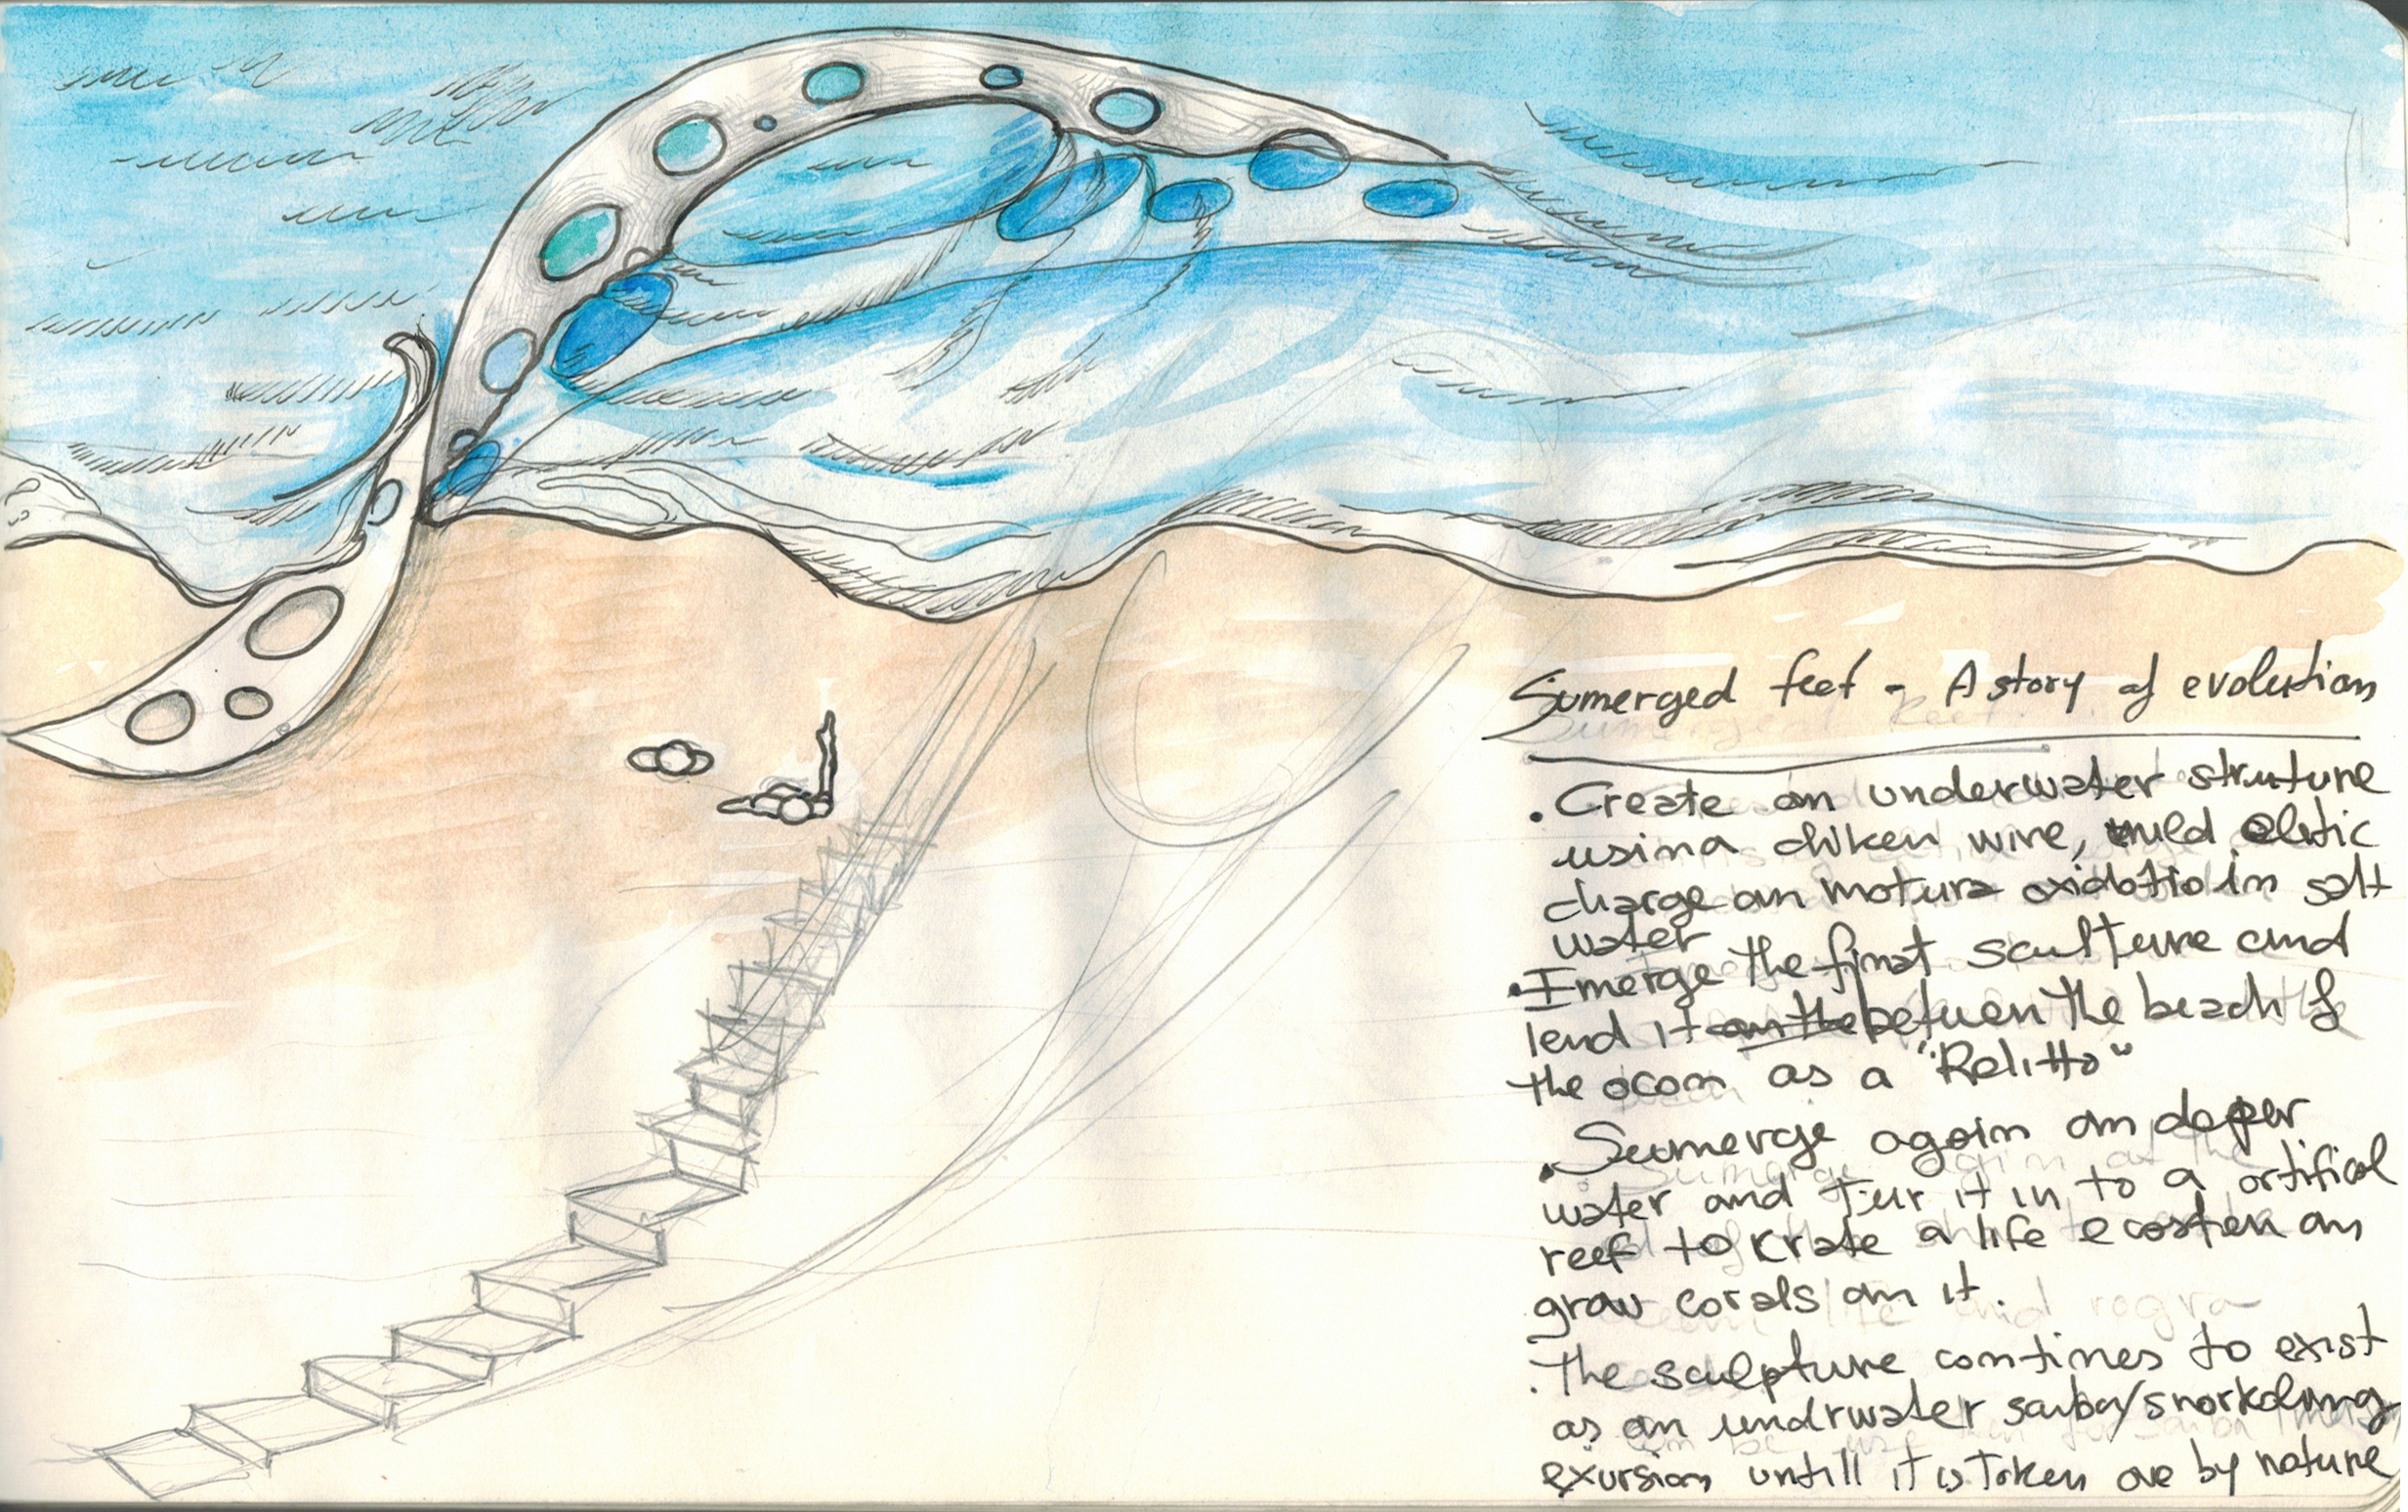 Sumerged feet - A story of evolution
. Create an underwater struture
using chiken wire, mild eletic
charge an natura oxidatio in salt
water
. Emerge the final sculture and
lend it on the betwen the beach &
the ocean as a "Relitto"
. Sumerge again on deper
water and turn it in to a artifical
reef to krate a life ecosten an
grow corals on it.
. The sculpture contines to exist
as an undrwater scuba/snorkelung
exursion untill it is token ove by nature